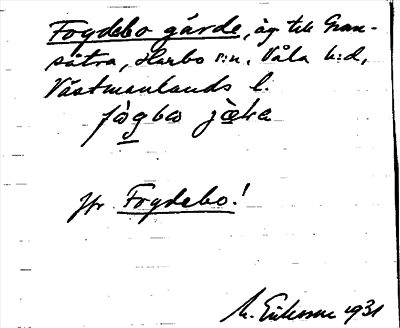 Fogdebo gärde, äg till Gran-
sätra, Harbo s:n, Våla h:d,
Västmanlands l.
fògba jæ̀ka
Jfr Fogdebo!
M. Eriksson 1931